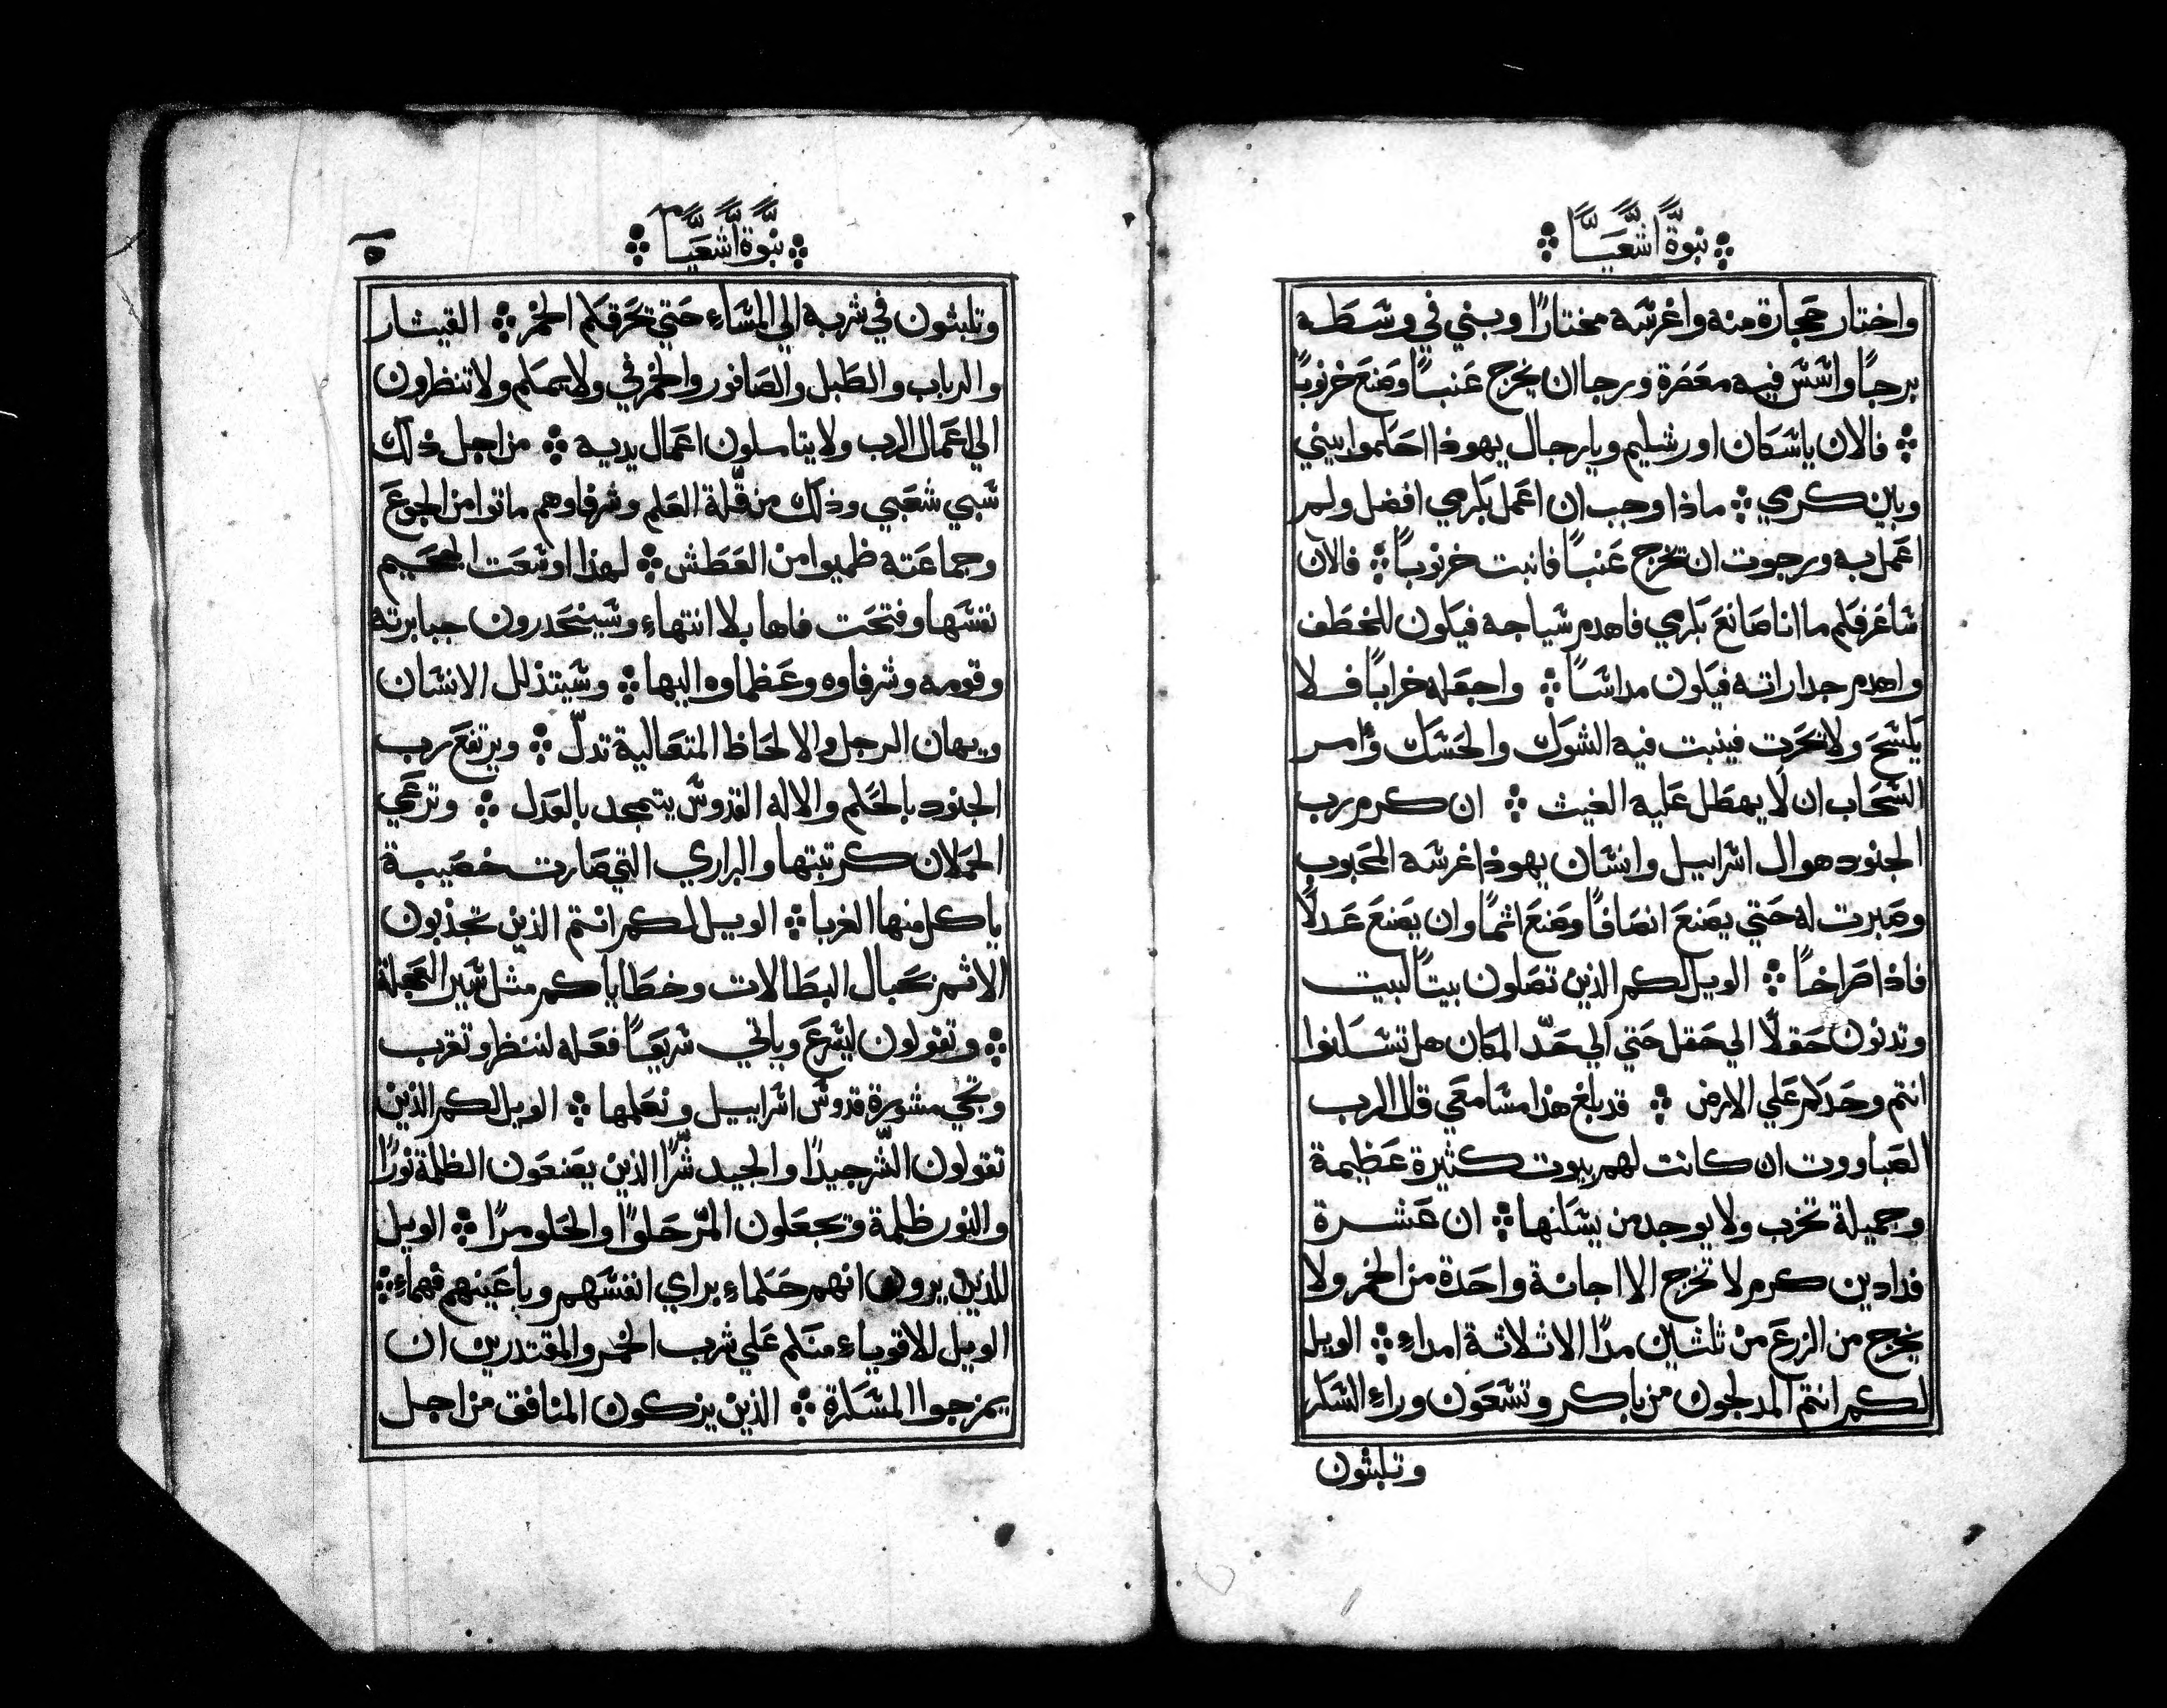 نبوة اشعيا
واختار حجارة منه واغرسه مختارًا وبني في وسطه
برجًا واسس فيه معصرة ورجا ان يخرج عنبًا وصنع خرنوبًا
فالان ياسكان اورشليم ويارجال يهوذا احكموا بيني
وبين كرمي ماذا وجب ان اعمل بكرمي افضل ولم
اعمل به ورجوت ان تخرج عنبًا فانبت خرنوبًا فالان
ساعرفكم ما انا صانع بكرمي فاهدم سياجه فيكون للخطف
واهدم جداراته فيكون مداسًا واجعله خرابًا فلا
يكسح ولا تحرت فينبت فيه الشوك والحسك وأمر
السحاب ان لا يهطل عليه الغيث ان كرم رب
الجنود هو ال اسراييل وانسان يهوذا غرسه المحبوب
وصبرت له حتي يصنع انصافًا وصنع اثمًا وان يصنع عدلًا
فاذا صراخًا الويل لكم الذين تصلون بيتًا لبيت
وتدنون حقلًا الي حقل حتي الي حدّ المكان هل تسكنوا
انتم وحدكم علي الارض قد بلغ هذا مسامعي قال الرب
الصباووت ان كانت لهم بيوت كثيرة عظيمة
وجميلة تخرب ولا يوجد من يسكنها ان عشرة
فدادين كرم لا تخرج الا اجانة واحدة من الخمر ولا
يخرج من الزرع من ثلثين مدًا الا ثلاثة امداء الويل
لكم انتم المدلجون من باكر وتسعون وراء السكر
وتلبثون
نبوة اشعيا
٥
وتلبثون في شربه الي المساء حتي تحرقكم الخمر القيثار
والرباب والطبل والصافور والخمر في ولايمكم ولا تنظرون
الي اعمال الرب ولا يتاملون اعمال يديه من اجل ذلك
سبي شعبي وذلك من قلّة العلم وشرفاوهم ماتوا من الجوع
وجماعته ظميوا من العطش لهذا اوسعت الجحيم
نفسها وفتحت فاها بلا انتهاء وسينحدرون جبابرته
وقومه وشرفاوه وعظماوه اليها وسيتذلل الانسان
ويهان الرجل والالحاظ المتعالية تدلّ ويرتفع رب
الجنود بالحكم والاله القدوس يتمجد بالعدل وترعي
الحملان كرتبتها والبراري التي صارت خصيبة
ياكل منها الغربا الويل لكم انتم الذين تجذبون
الاثم بحبال البطالات وخطاياكم مثل سير العجلة
وتقولون ليسرع وياتي سريعًا فعله لننظر وتقرب
وتجي مشورة قدوس اسراييل ونعلمها الويل لكم الذين
تقولون الشّر جيدًا والجيد شّرًا الذين يصنعون الظلمة نورًا
والنور ظلمة وتجعلون المرّ حلوًا والحلو مرًا الويل
للذين يرون انهم حكماء براي انفسهم وباعينهم فهماء
الويل للاقوياء منكم علي شرب الخمر والمقتدرين ان
يمزجوا المسكرة الذين يزكون المنافق من اجل